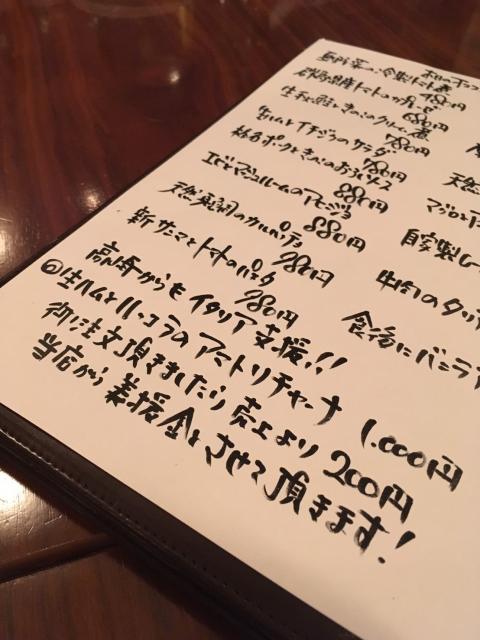 夏野菜の冷製トマト煮
480円
群馬県産トマトのカプレーゼ
680円
生干し鮭ときのこのクリーム煮
780円
生ハムとイチジクのサラダ
780円
榛名ポークときのこのおろしソース
880円
エビとマッシュルームのアヒージョ
880円
天然真鯛のカルパッチョ
980円
新サンマとトマトのパスタ
980円
天然
マグロとア
自家製レ
牛肉のタリア
食後にバニラア
高崎からもイタリア支援!!
◎生ハムとルッコラのアマトリチャーナ 1,000円
御注文頂きましたら売上より200円
当店から義援金とさせて頂きます!